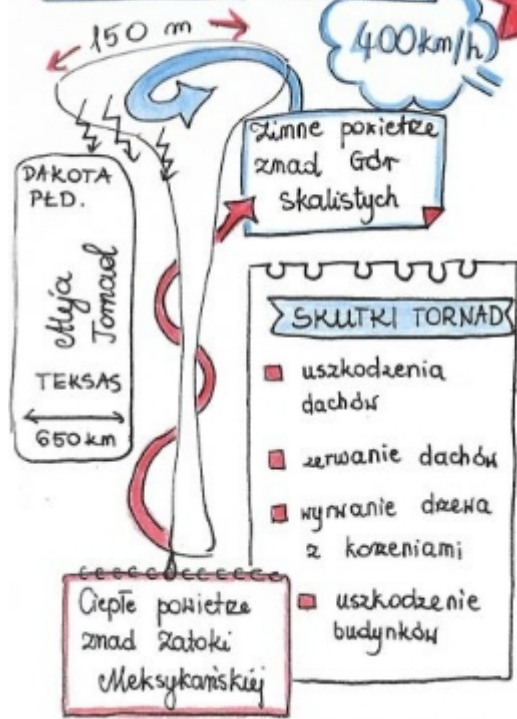 150 m
400km/h
Zimne powietrze
znad Gór
Skalistych
DAKOTA
PŁD.
Aleja
Tornad
TEKSAS
650 km
SKUTKI TORNAD
uszkodzenia
dachów
zerwanie dachów
wyrwanie drzewa
z korzeniami
uszkodzenie
budynków
Ciepłe powietrze
znad Zatoki
Meksykańskiej